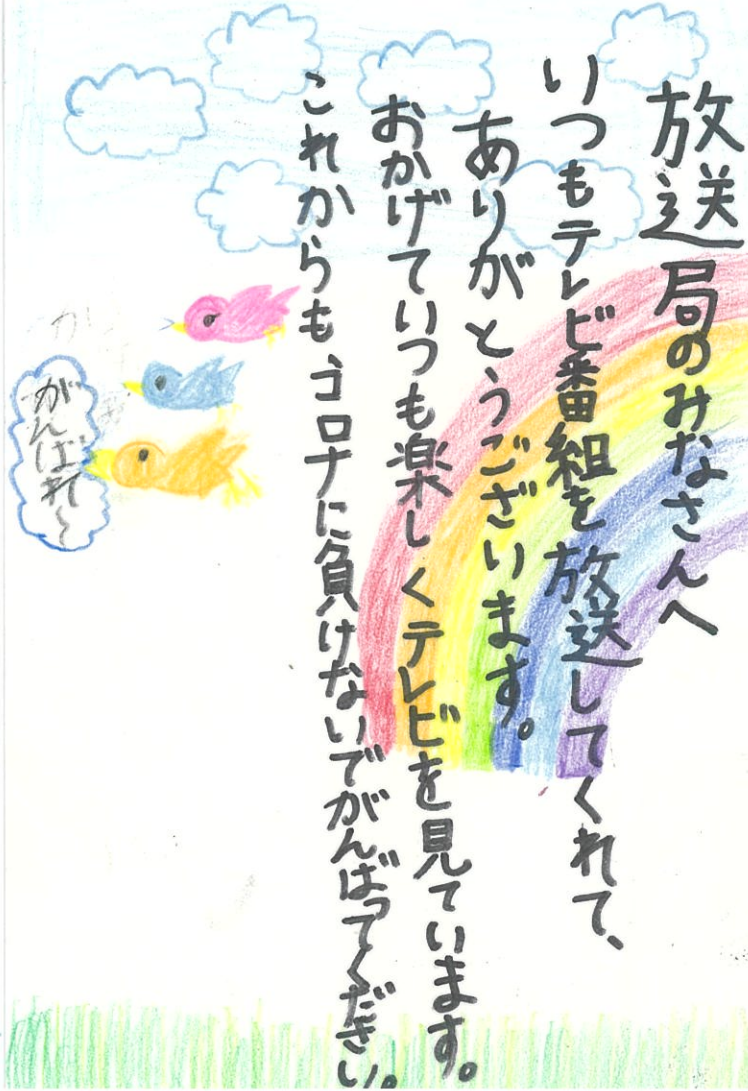 放送局のみなさんへ
いつもテレビ番組を放送してくれて、
ありがとうございます。
おかげていつも楽しくテレビを見ています。
これからも、コロナに負けないでがんばってください。
がんばれ〜